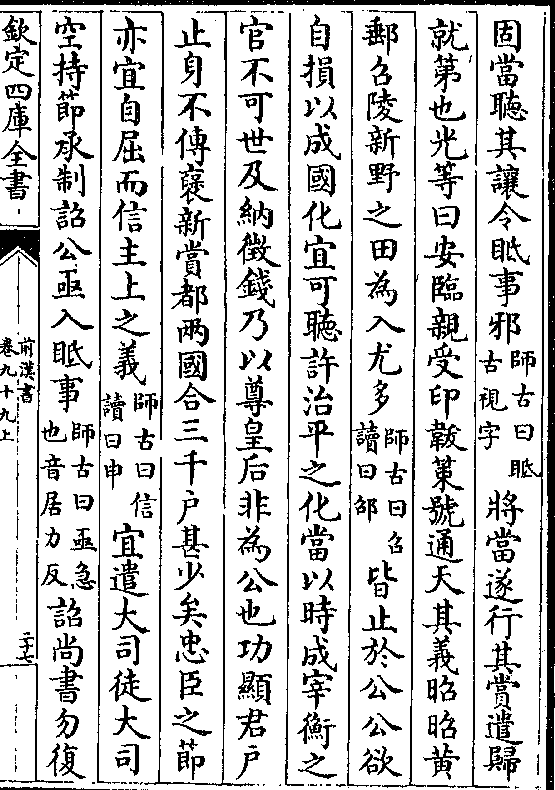 固當聽其讓令眡事邪師古曰眡古視字將當遂行其賞遣歸
就第也光等曰安臨親受印韍策號通天其義昭昭黃
郵召陵新野之田為入尤多師古曰召讀曰邵皆止於公公欲
自損以成國化宜可聽許治平之化當以時成宰衡之
官不可世及納徵錢乃以尊皇后非為公也功顯君户
止身不傳襃新賞都兩國合三千户甚少矣忠臣之節
亦宜自屈而信主上之義師古曰信讀曰申宜遣大司徒大司
空持節承制詔公亟入眡事師古曰亟急也音居力反詔尚書勿復
欽定四庫全書
前漢書
卷九十九上
二十七